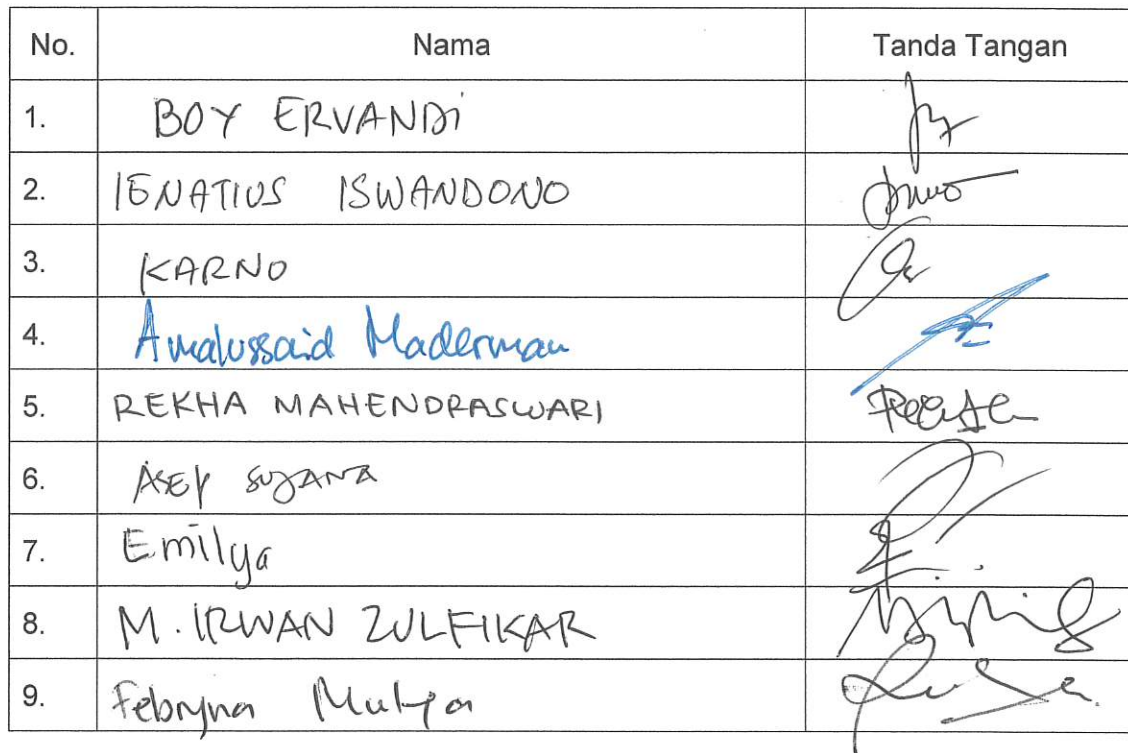 No. Nama Tanda Tangan
1. BOY ERVANDi
2. IGNATIUS ISWANDONO
3. KARNO
4. Amalussaid Maderman
5. REKHA MAHENDRASWARI
6. ASEP SUJANA
7. Emilya
8. M. IRWAN ZULFIKAR
9. Febryna Mulya